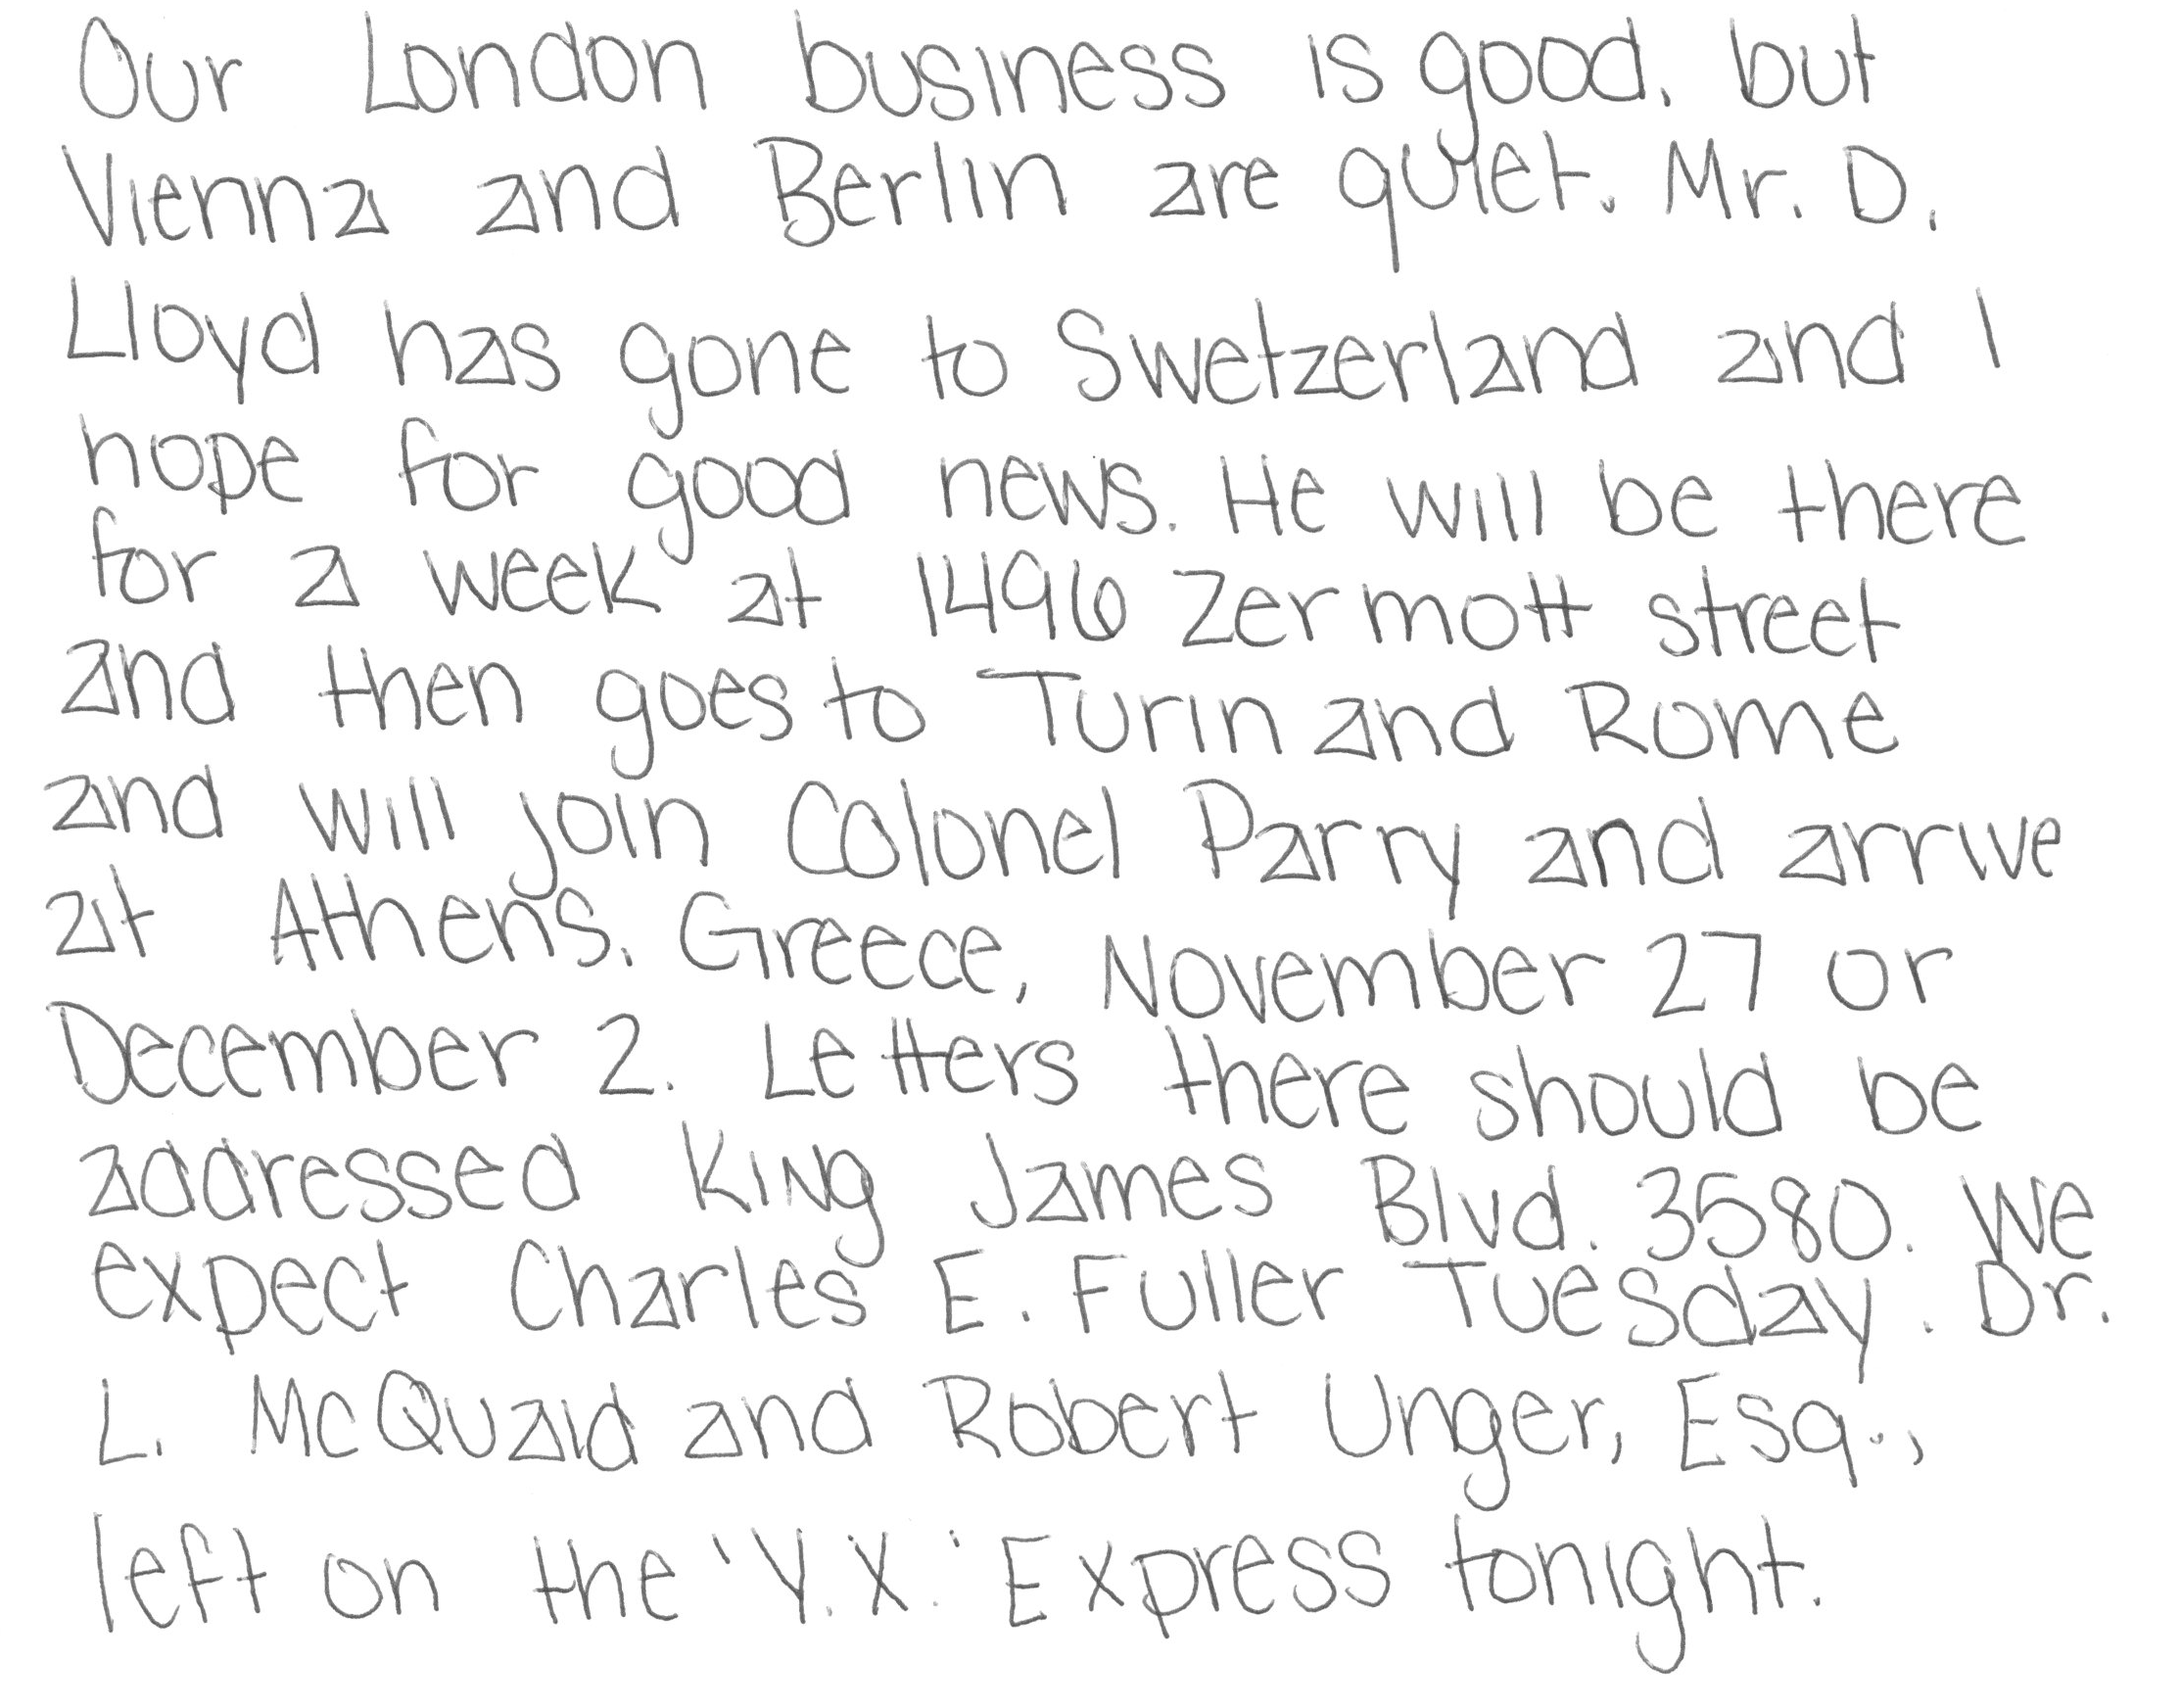 Our London business is good, but
Vienna and Berlin are quiet. Mr. D.
Lloyd has gone to Swetzerland and I
hope for good news. He will be there
for a week at 1496 Zermott street
and then goes to Turin and Rome
and will join Colonel Parry and arrive
at Athens, Greece, November 27 or
December 2. Letters there should be
addressed King James Blvd. 3580. We
expect Charles E. Fuller Tuesday. Dr.
L. McQuaid and Robert Unger, Esq.,
left on the 'Y.X.' Express tonight.